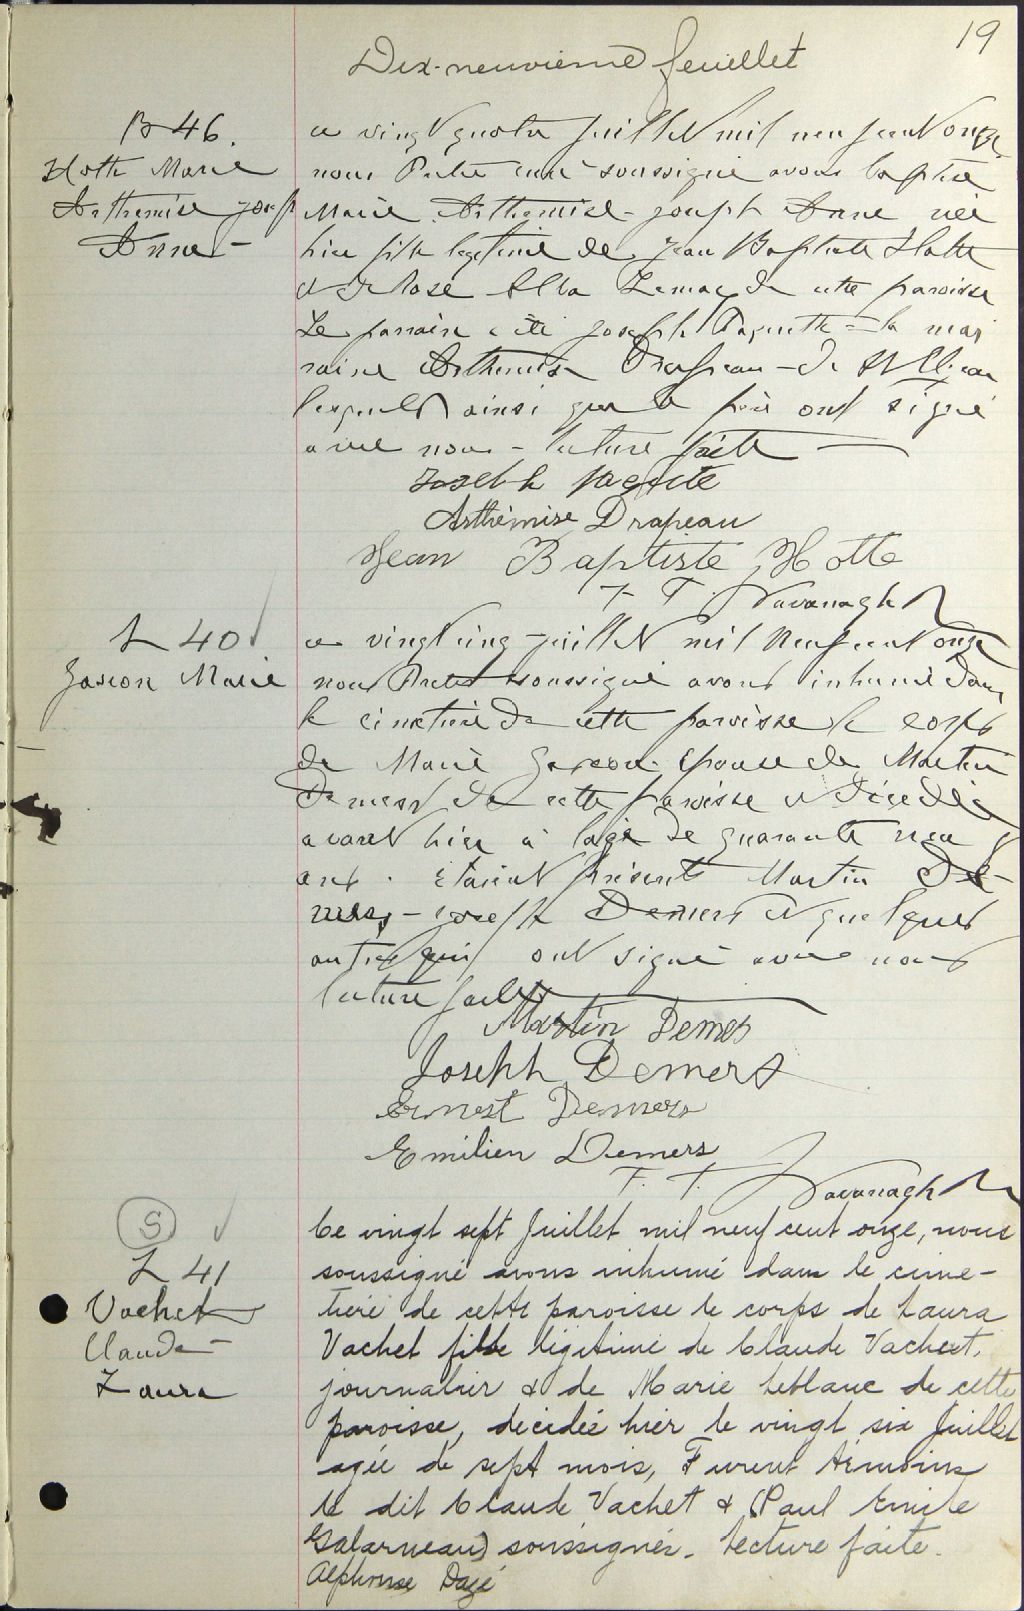 19
Dix-neuvième feuillet
B 46.
Hotte Marie
Arthémise Joseph
Anne
ce vingt quatre juillet mil neuf cent onze
nous Prêtre curé soussigné avons baptisé
Marie Arthemise Joseph Anne née
hier fille légitime de Jean Baptiste Hotte
et de Rose Alba de cette paroisse
Le parrain a été Joseph Paquette - la mar
raine Arthemise Drapeau - de St
lesquels ainsi que le père ont signé
avec nous - lecture faite
Joseph paqette
Arthémise Drapeau
Jean Baptiste Hotte
F. T. Kavanagh
L 40
Gascon Marie
ce vingt cinq juillet mil neuf cent onze
nous Prêtre soussigné avons inhumé dans
le cimetière de cette paroisse le corps
de Marie Gascon épouse de Martin
Demers de cette paroisse et décédée
avant hier à l'age de quarante neuf
ans. étaient présents Martin De-
mers - Joseph Demers et quelques
autres qui ont signé avec nous
lecture faite
Martin Demes
Joseph Demers
Ernest Demers
Emilien Demers
F. T. Kavanagh
S
L 41
Vachet
Claude
Laura
Ce vingt sept Juillet mil neuf cent onze, nous
soussigné avons inhumé dans le cime-
tière de cette paroisse le corps de Laura
Vachet fille légitime de Claude Vachet,
journalier & de Marie Leblanc de cette
paroisse, décédée hier le vingt six Juillet
agée de sept mois, Furent témoins
le dit Claude Vachet & (Paul Emile
Galarneau) soussignés. Lecture faite.
Alphonse Dazé